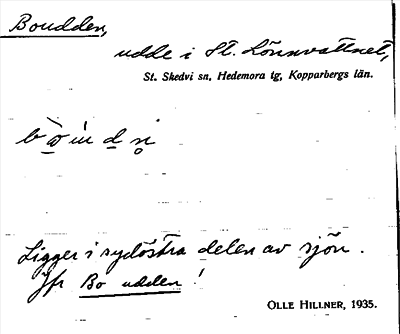 Boudden,
udde i St. Lönnvattnet,
St. Skedvi sn, Hedemora tg, Kopparbergs län.
Ligger i sydöstra delen av sjön.
Jfr Bo udden!
OLLE HILLNER, 1935.